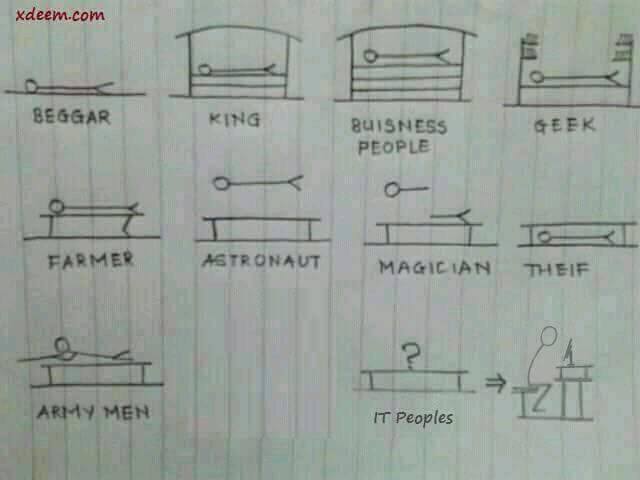 xdeem.com
BEGGAR
KING
BUISNESS
PEOPLE
GEEK
FARMER
ASTRONAUT
MAGICIAN
THEIF
ARMY MEN
?
IT Peoples